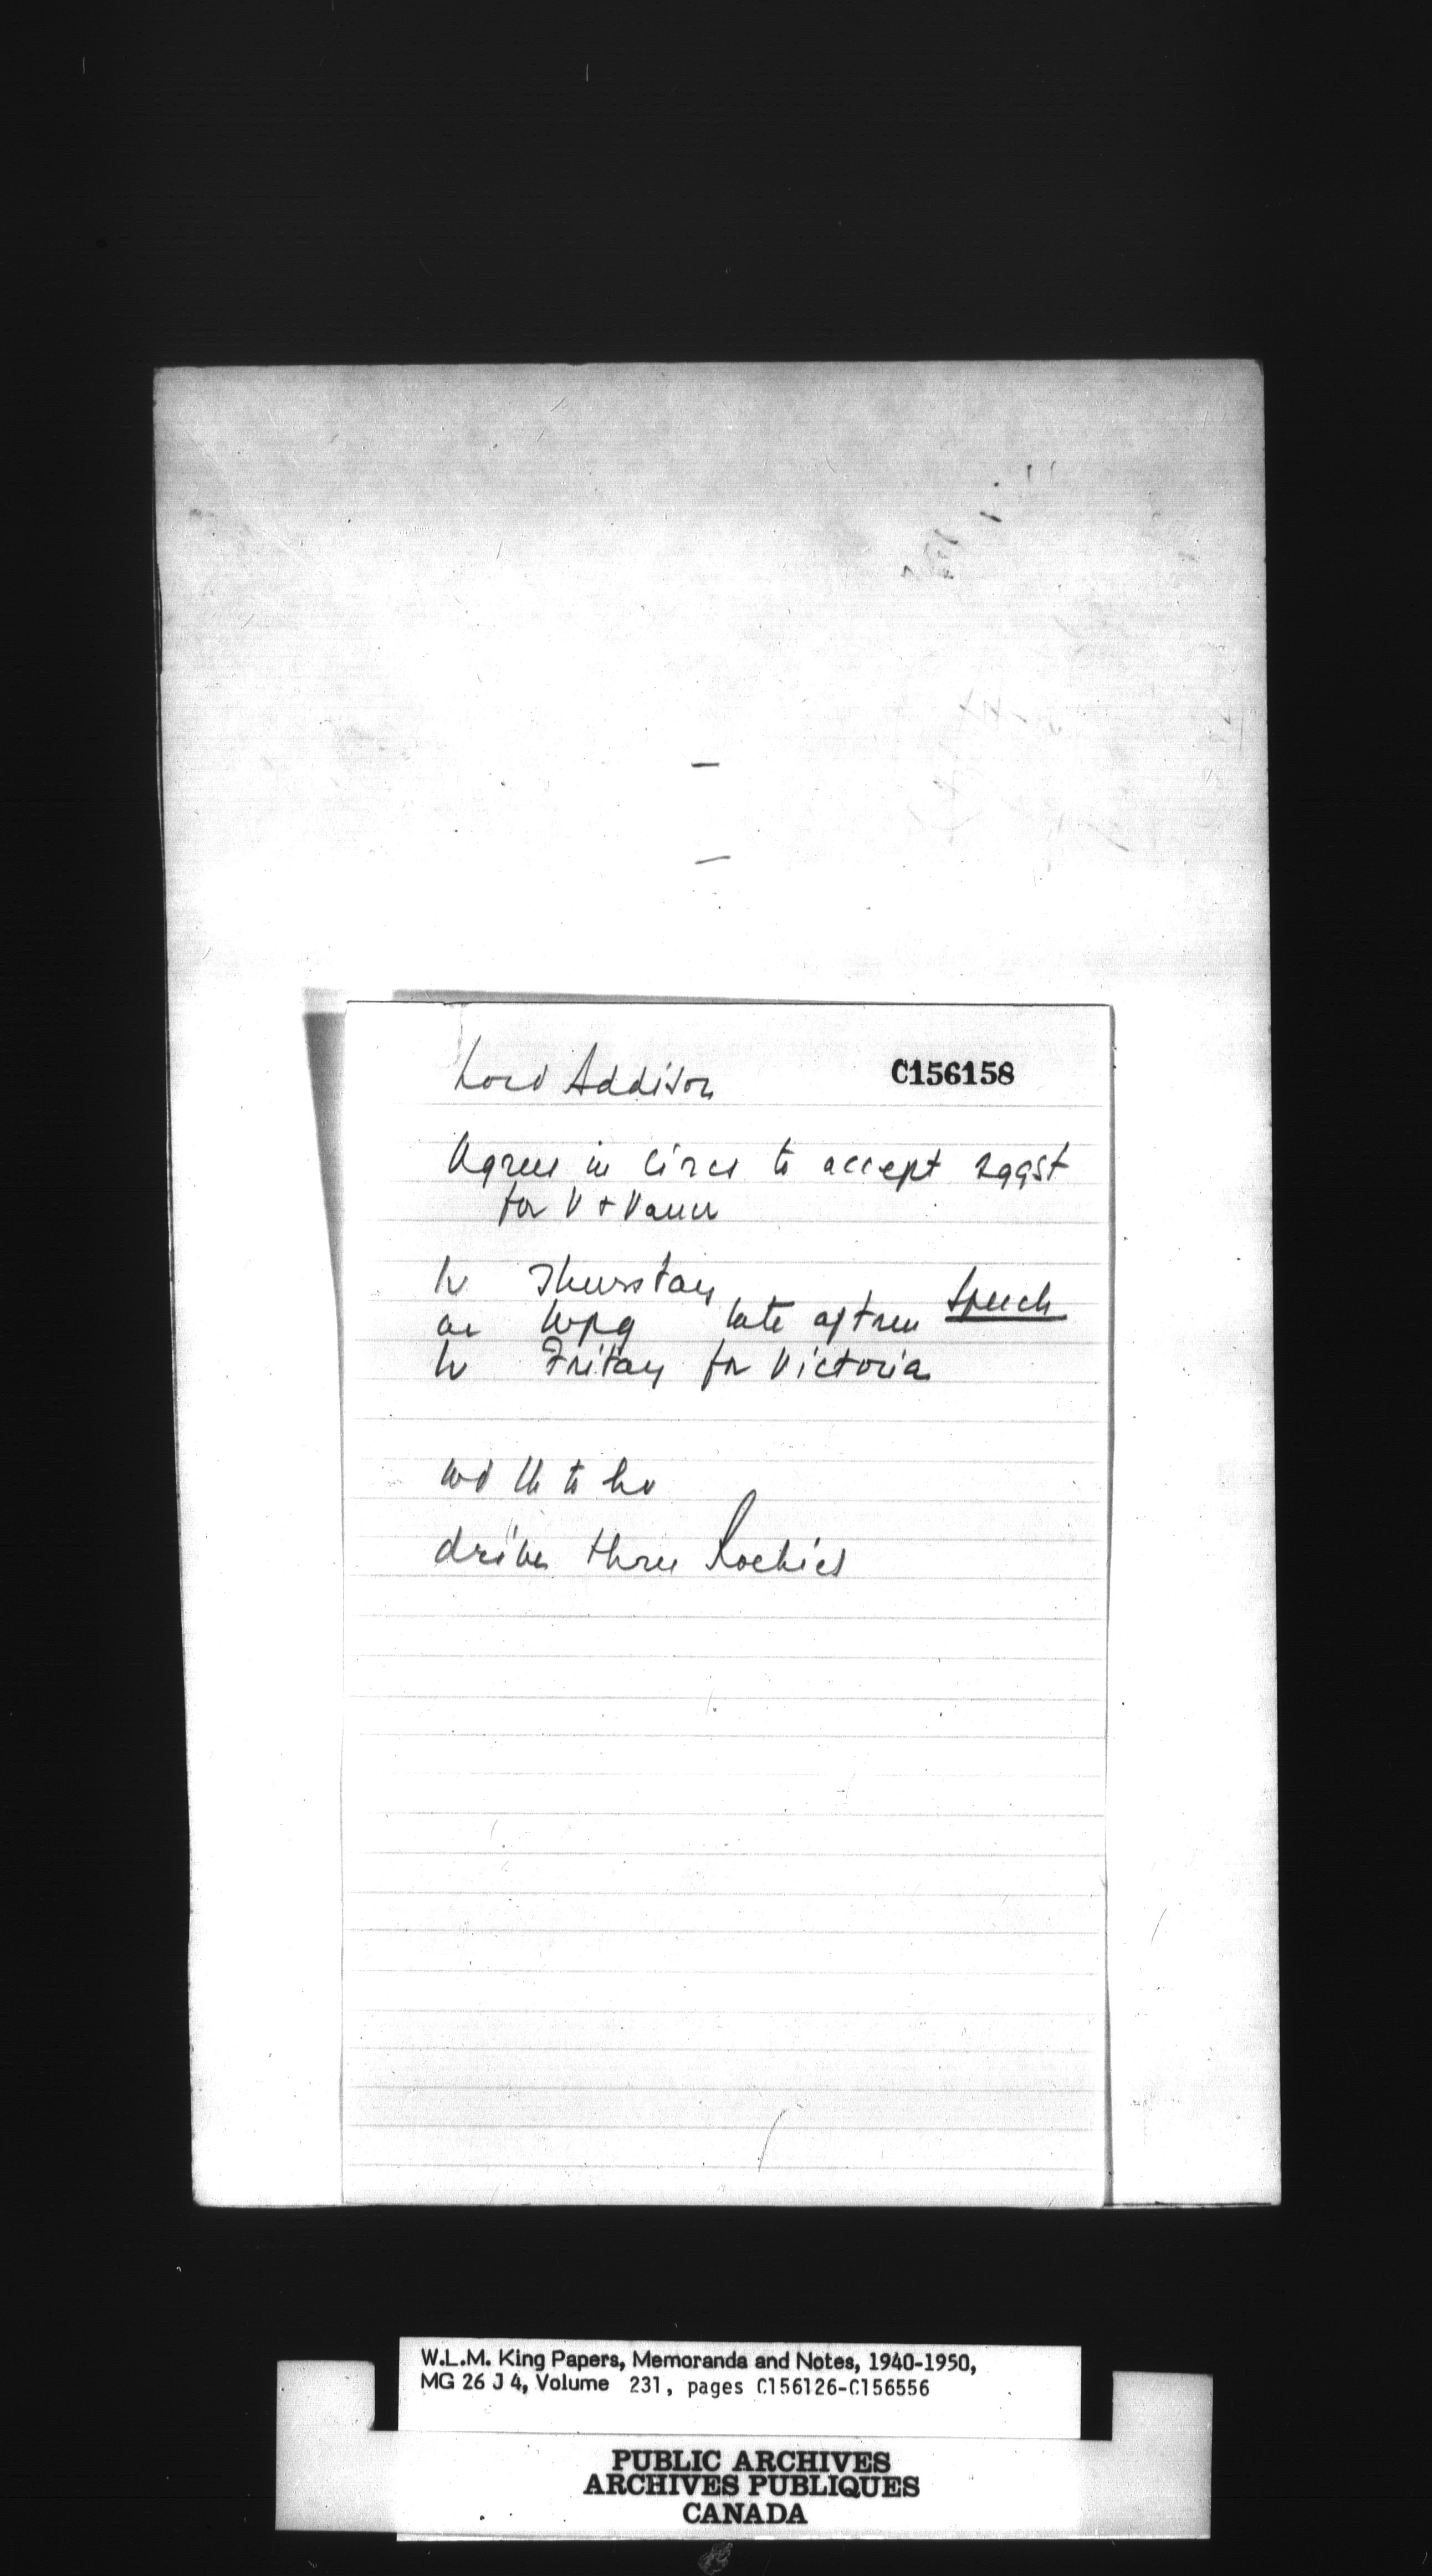 Lord Addison C156158
Agrees in circs to accept sggst
for V + Vancr
lv Thursday
ar Wpg late aftrn Speech
lv Friday for Victoria
wd lk to hv
drive thru Rockies
W.L.M. King Papers, Memoranda and Notes, 1940-1950,
MG 26 J 4, Volume 231, pages C156126-C156556
PUBLIC ARCHIVES
ARCHIVES PUBLIQUES
CANADA